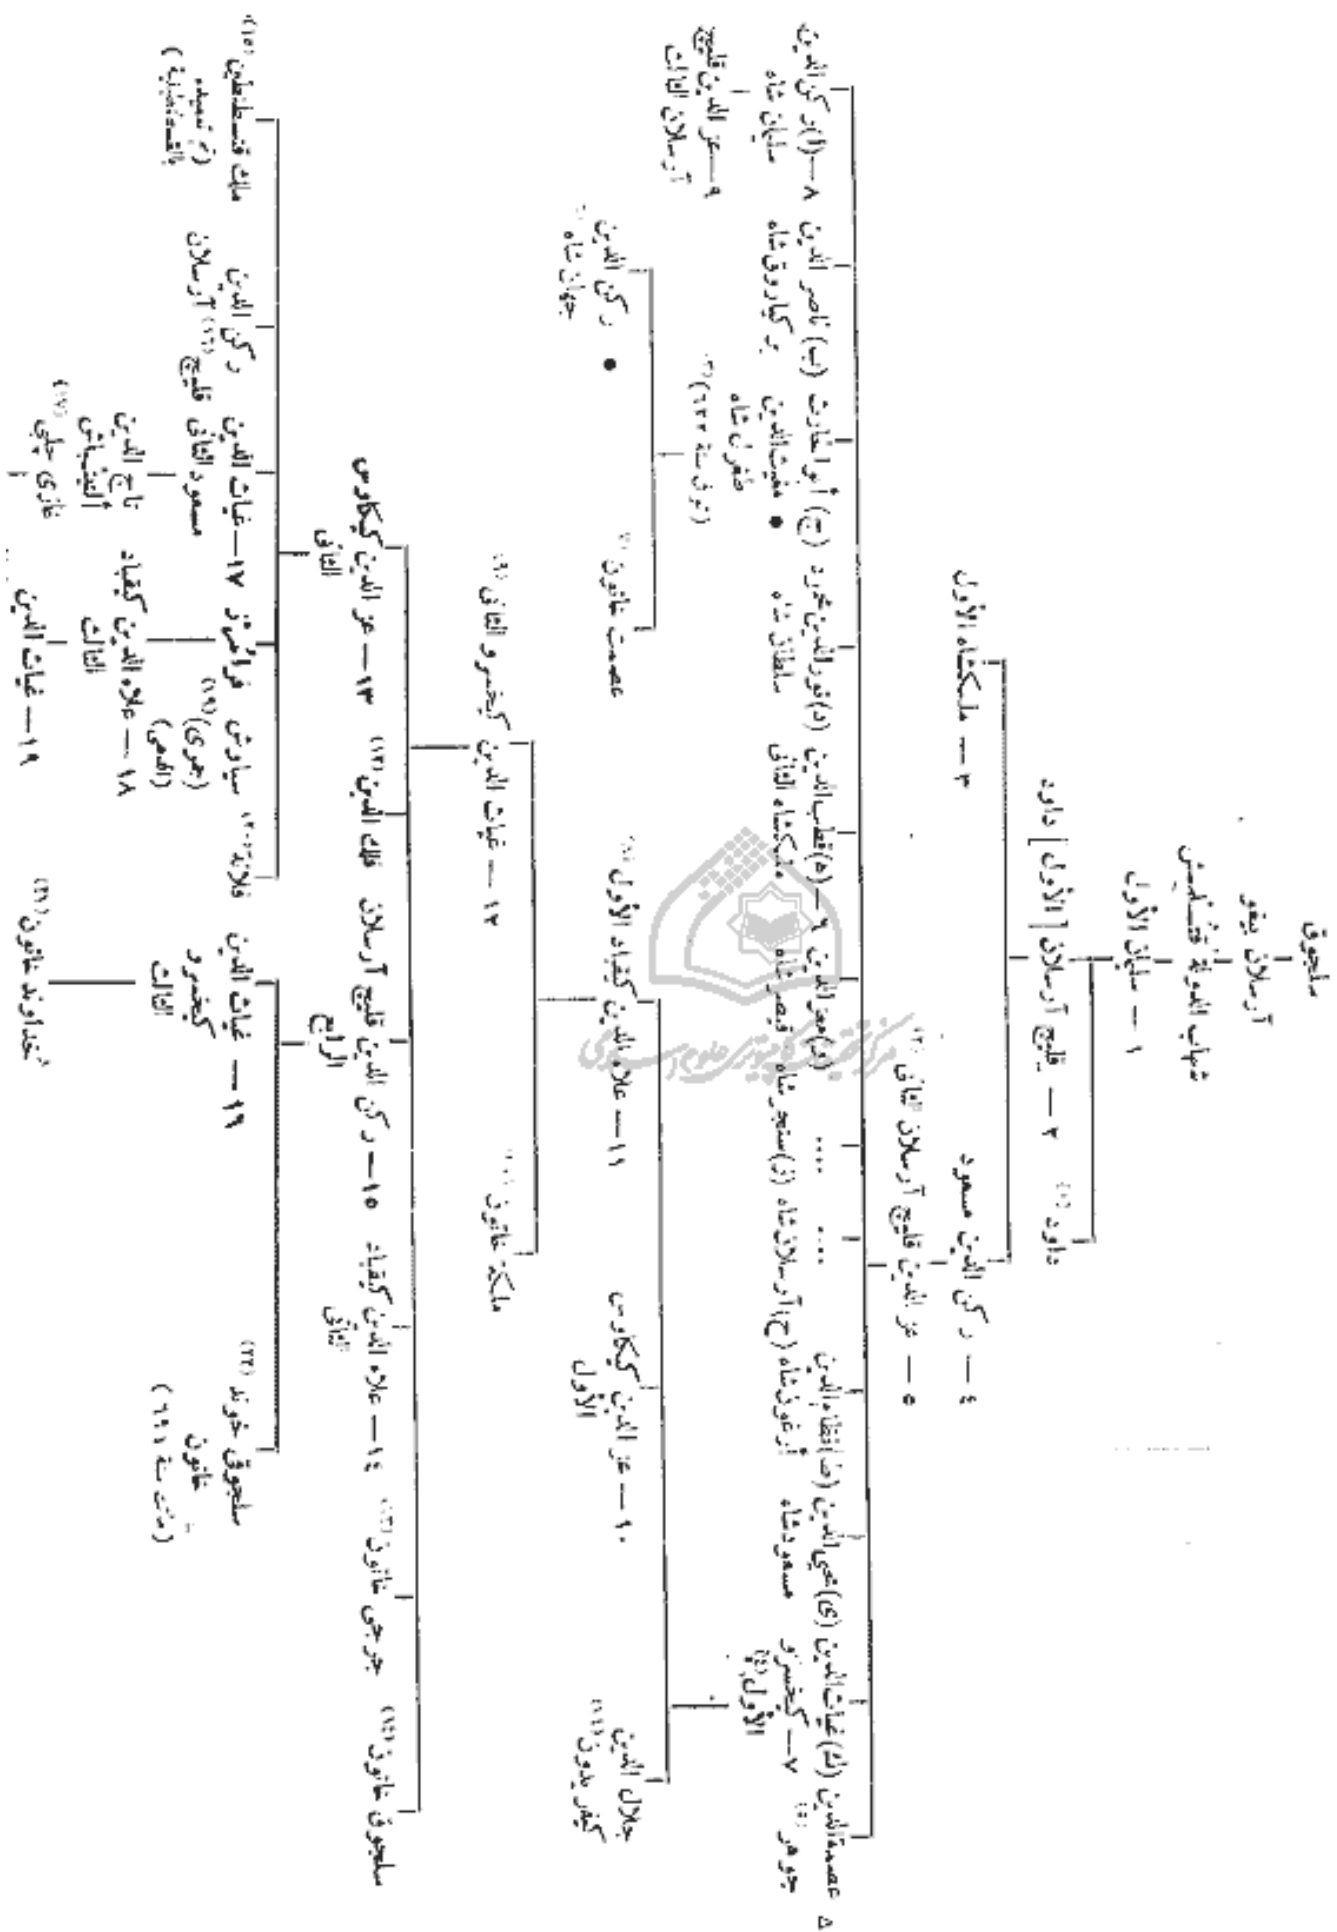 سلجوق
آرسلان يبغو
شهاب الدولة قتلمش
١ — سليمان الأول
٢ — قليج آرسلان [الأول] داود
داود (١)
٣ — ملكشاه الأول
٤ — ركن الدين مسعود
٥ — عز الدين قليج آرسلان الثاني (٢)
٨ — (ا) ركن الدين سليمان شاه
(ب) ناصر الدين بركياروق شاه
(ج) مغيث الدين طغرل شاه
(توفى سنة ٦٢٢) (٣)
(د) نور الدين محمود سلطان شاه
٦ — (ه) قطب الدين ملكشاه الثاني
(و) معز الدين قيصر شاه
(ز) سنجر شاه
(ح) آرسلان شاه
(ط) نظام الدين أرغون شاه
(ى) محيى الدين مسعود شاه
(ك) غياث الدين
٧ — كيخسرو الأول (٤)
عصمة الدين جوهر (٥)
٩ — عز الدين قليج آرسلان الثالث
ركن الدين جهان شاه
عصمت خاتون
١١ — علاء الدين كيقباد الأول
١٠ — عز الدين كيكاوس الأول
جلال الدين كيفريدون (١١)
١٢ — غياث الدين كيخسرو الثاني (٩)
ملكة خاتون (١٠)
١٣ — عز الدين كيكاوس الثاني
فلك الدين (١٢)
١٥ — ركن الدين قليج آرسلان الرابع
١٤ — علاء الدين كيقباد الثاني
جرجى خاتون (١٣)
سلجوق خاتون (١٤)
ملك قسطنطين (١٥)
(تم تعميده بالقسطنطينية)
ركن الدين قليج آرسلان (١٦)
١٧ — غياث الدين مسعود الثاني
فرامرز
سياوش (١٩)
(جمرى)
(المدعى)
فلانة (٢٠)
١٦ — غياث الدين كيخسرو الثالث
سلجوق خوند خاتون (٢٢)
تاج الدين
غازى چلبى (١٧)
١٨ — علاء الدين كيقباد الثالث
خداوند خاتون (٢١)
١٩ — غياث الدين